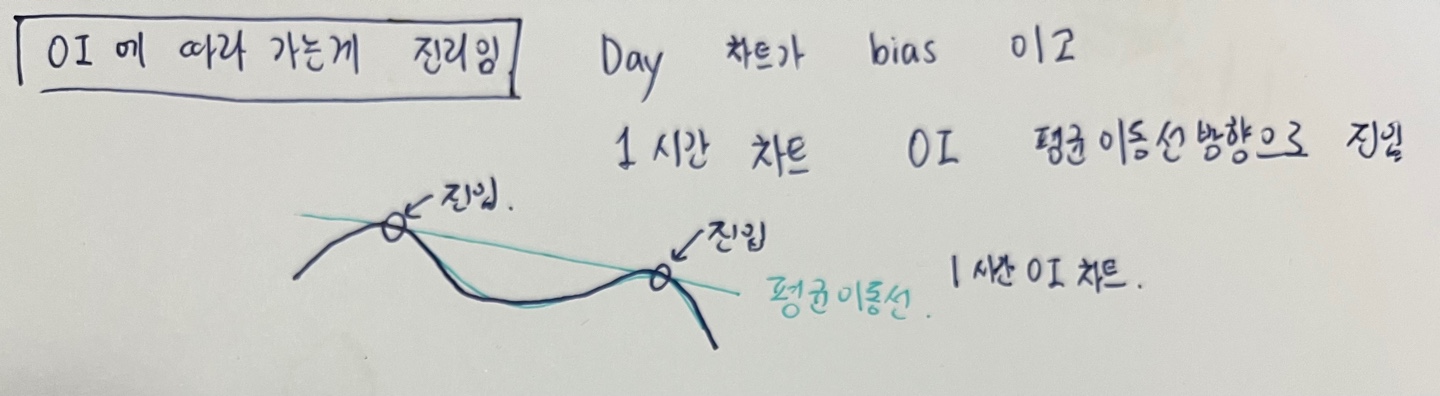 OI에 따라 가는게 진리임
Day 차트가 bias 이고
1시간 차트 OI 평균이동선방향으로 진입
진입.
진입
평균이동선.
1시간 OI 차트.